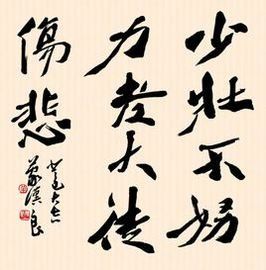 少壯不努
力老大徒
傷悲